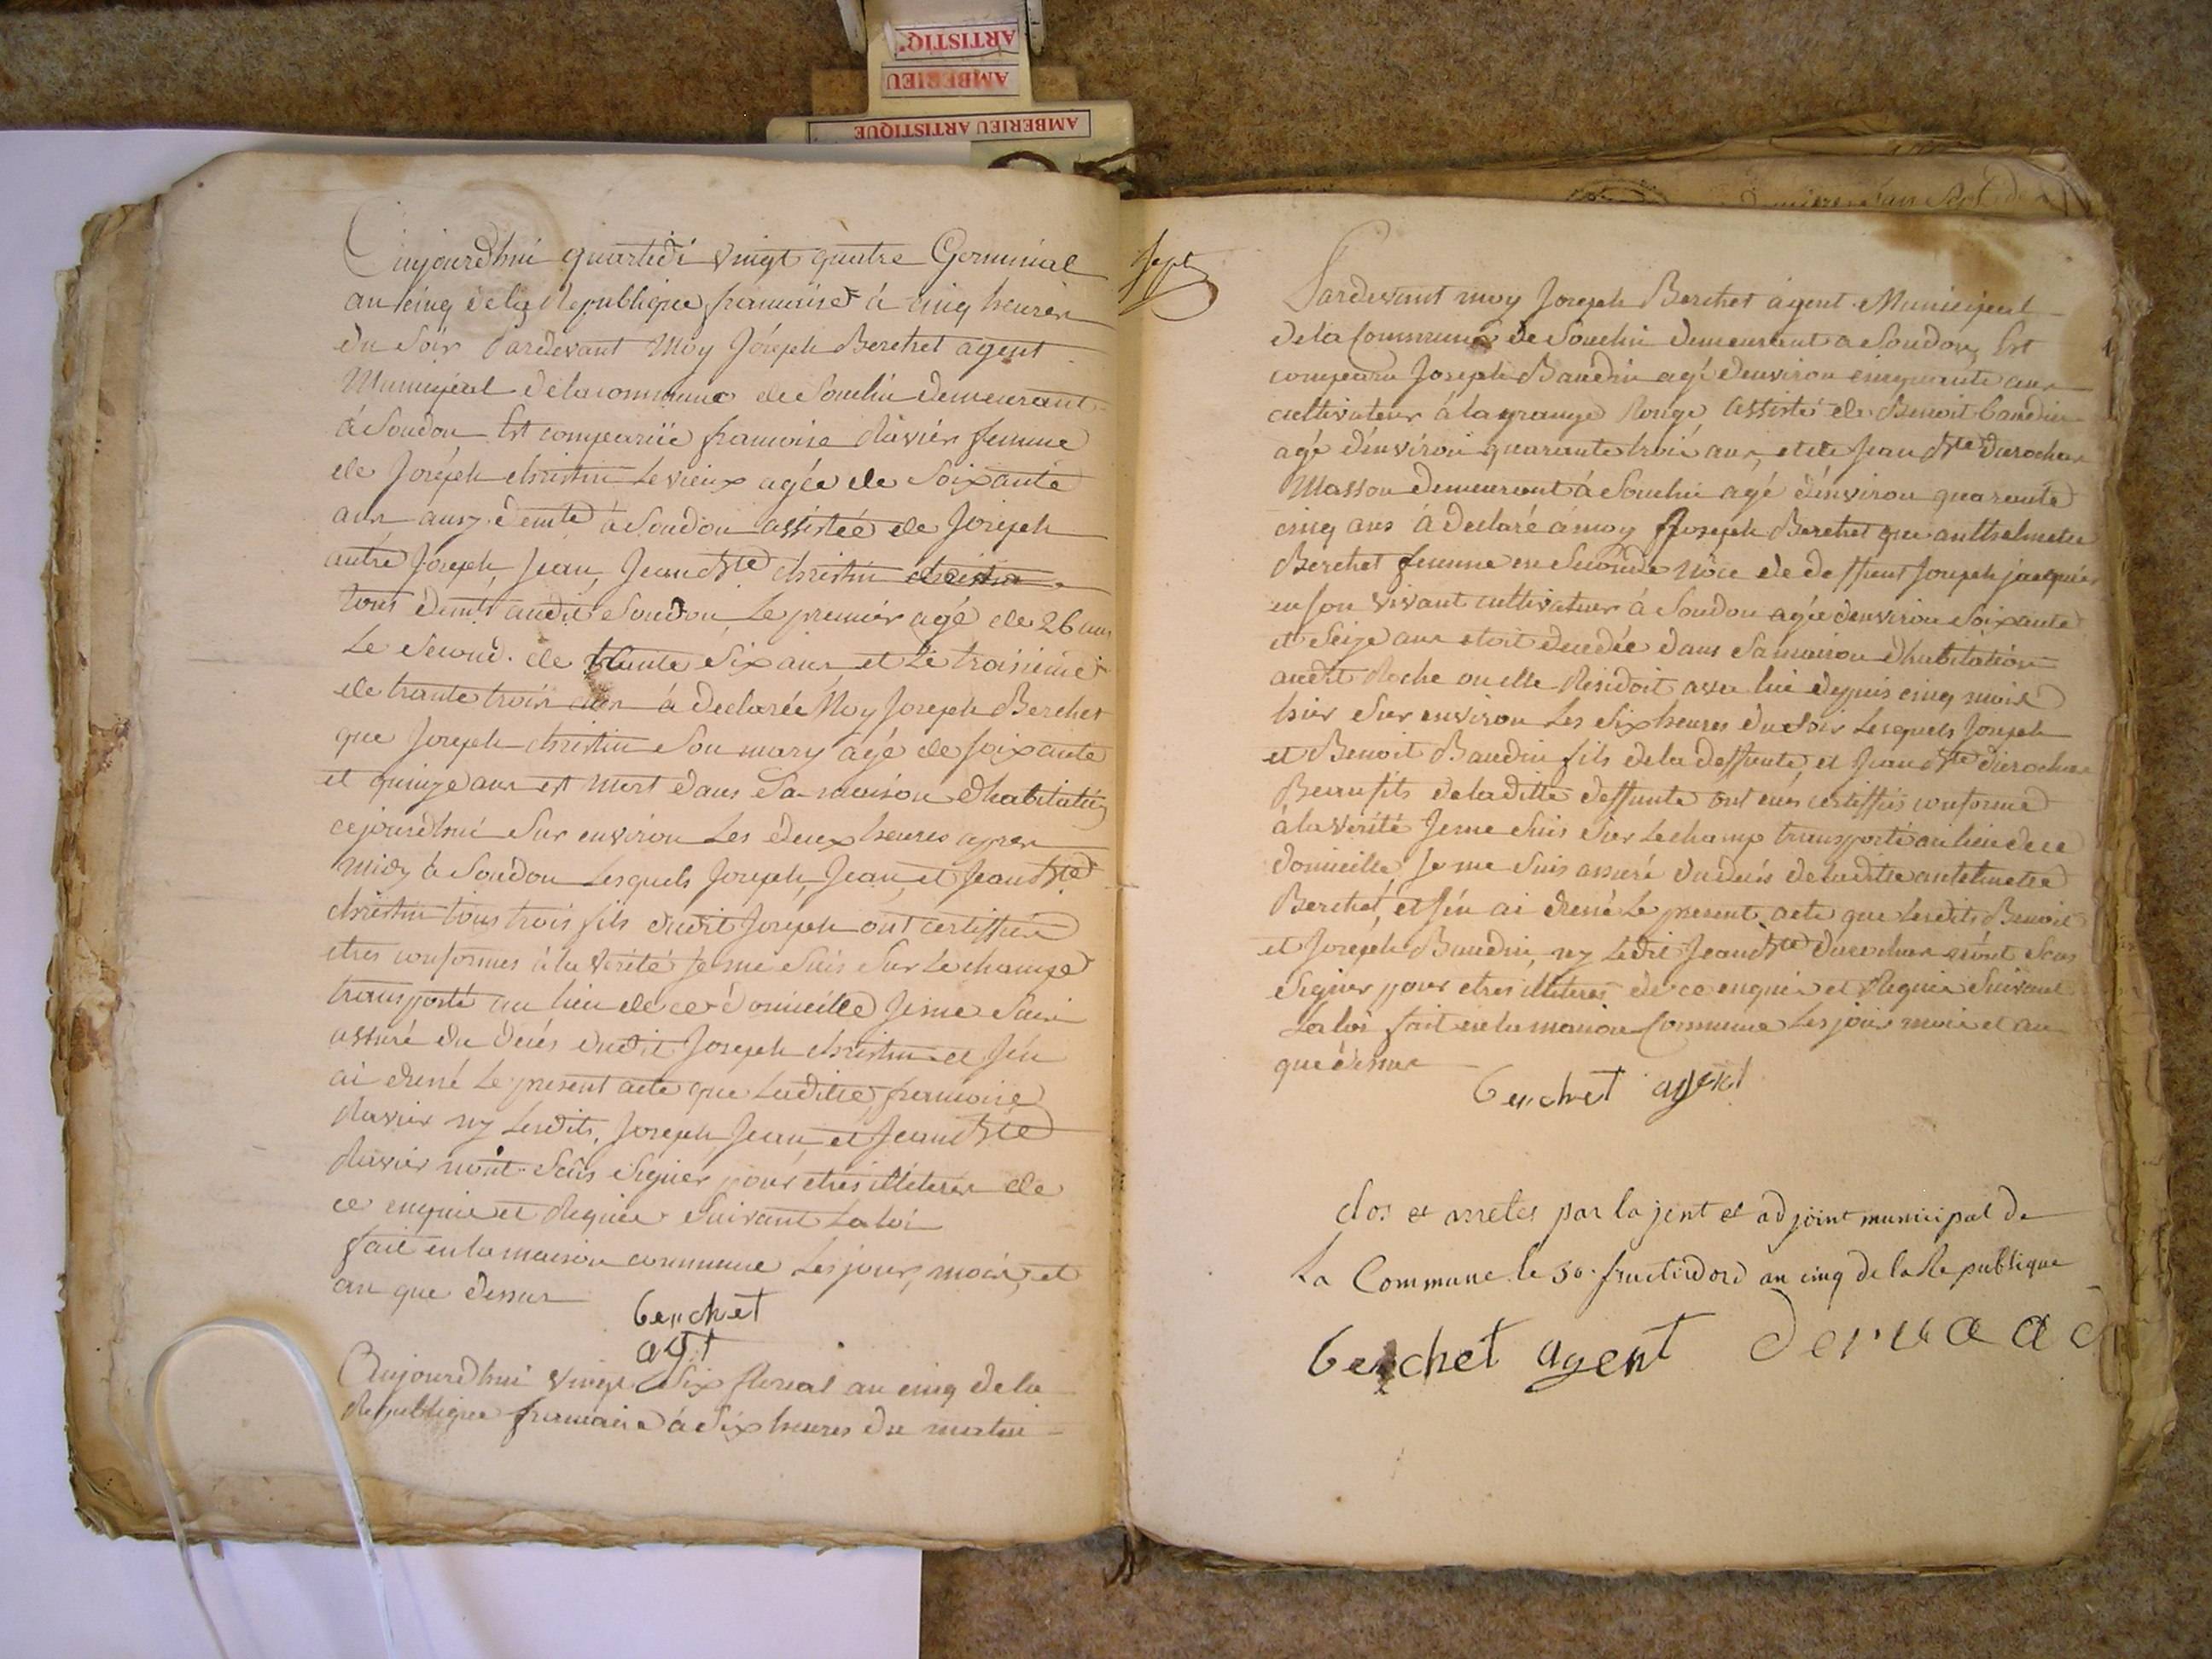 ARTISTIQ
AMBERIEU
AMBERIEU ARTISTIQUE
Aujourdhui quartidi vingt quatre Germinal
an cinq dela Republique francaise à cinq heures
du Soir Pardevant Moy Joseph Berchet agent
Municipal delacommune de Souclin demeurant
à Soudon Est comparüe francoise Ravier femme
de Joseph christin Levieux agée de Soixante
ans ausy demte à Soudon assistée de Joseph
autre Joseph, Jean, Jean Bte christin christin
tous demts audit Soudon, Le premier agé de 26 ans
Le Second de trente Six ans et Le troisieme
de trante trois ans à declarée Moy Joseph Berchet
que Joseph christin Son mary agé de soixante
et quinze ans est mort dans Sa maison dhabitation
cejourdhui Sur environ Les deux heures apres
midy à Soudon Lesquels Joseph, Jean, et Jean Bte
christin tous trois fils dudit Joseph ont certiffiéé
etres conformes à la Verité Je me Suis Sur Lechampt
transporté au lieu de ce domicille Jeme Suis
assuré du décés dudit Joseph christin et J'en
ai dressé Le present acte que Laditte francoise
Ravier ny Lesdits, Joseph, Jean, et Jean Bte
Ravier nont Scûs Signer pour etres illiteres de
ce enquis et Requis Suivant La loi
fait en la maison commune Les jour, mois, et
an que dessus
berchet
agt
Aujourdhui vingt Six floreal an cinq de la
Republique francaise à Six heures du matin
sept
Pardevant moy Joseph Berchet agent Municipal
de la Commune de Souclin demeurant a Soudon Est
comparu Joseph Baudin agé denviron cinquante ans
cultivateur à la grange Rouge assisté de Benoit baudin
agé d'environ quarante trois ans, et de Jean Bte durochat
Masson demeurant à Souclin agé d'environ quarante
cinq ans à declaré à moy Joseph Berchet que anthelmette
Berchet femme en Seconde Noce de deffunt Joseph jacquier
en son vivant cultivateur à Soudon agée denviron Soixante
et Seize ans etoit decedée dans Sa maison dhabitation
audit Roche ou elle Residoit avec lui depuis cinq mois
hier Sur environ Les Six heures du Soir Lesquels Joseph
et Benoit Baudin fils de la deffunte, et Jean Bte durochat
Beaufils de laditte deffunte ont certiffiés conforme
a la verité Jeme Suis Sur Lechamp transporté au lieu de ce
domicille, Je me Suis assuré du décés de laditte antelmette
Berchet, et J'en ai dressé Le present acte que Lesdits Benoit
et Joseph Baudin, ny Ledit Jean Bte durochat n'ont Scus
Signer pour etres illiteres de ce enquis et Requis Suivant
La loi fait en la maison Commune Les jour mois et an
que dessus
berchet agent
clos et arretes par lajent et adjoint municipal de
La Commune le 30 fructidord an cinq de la Republique
berchet agent